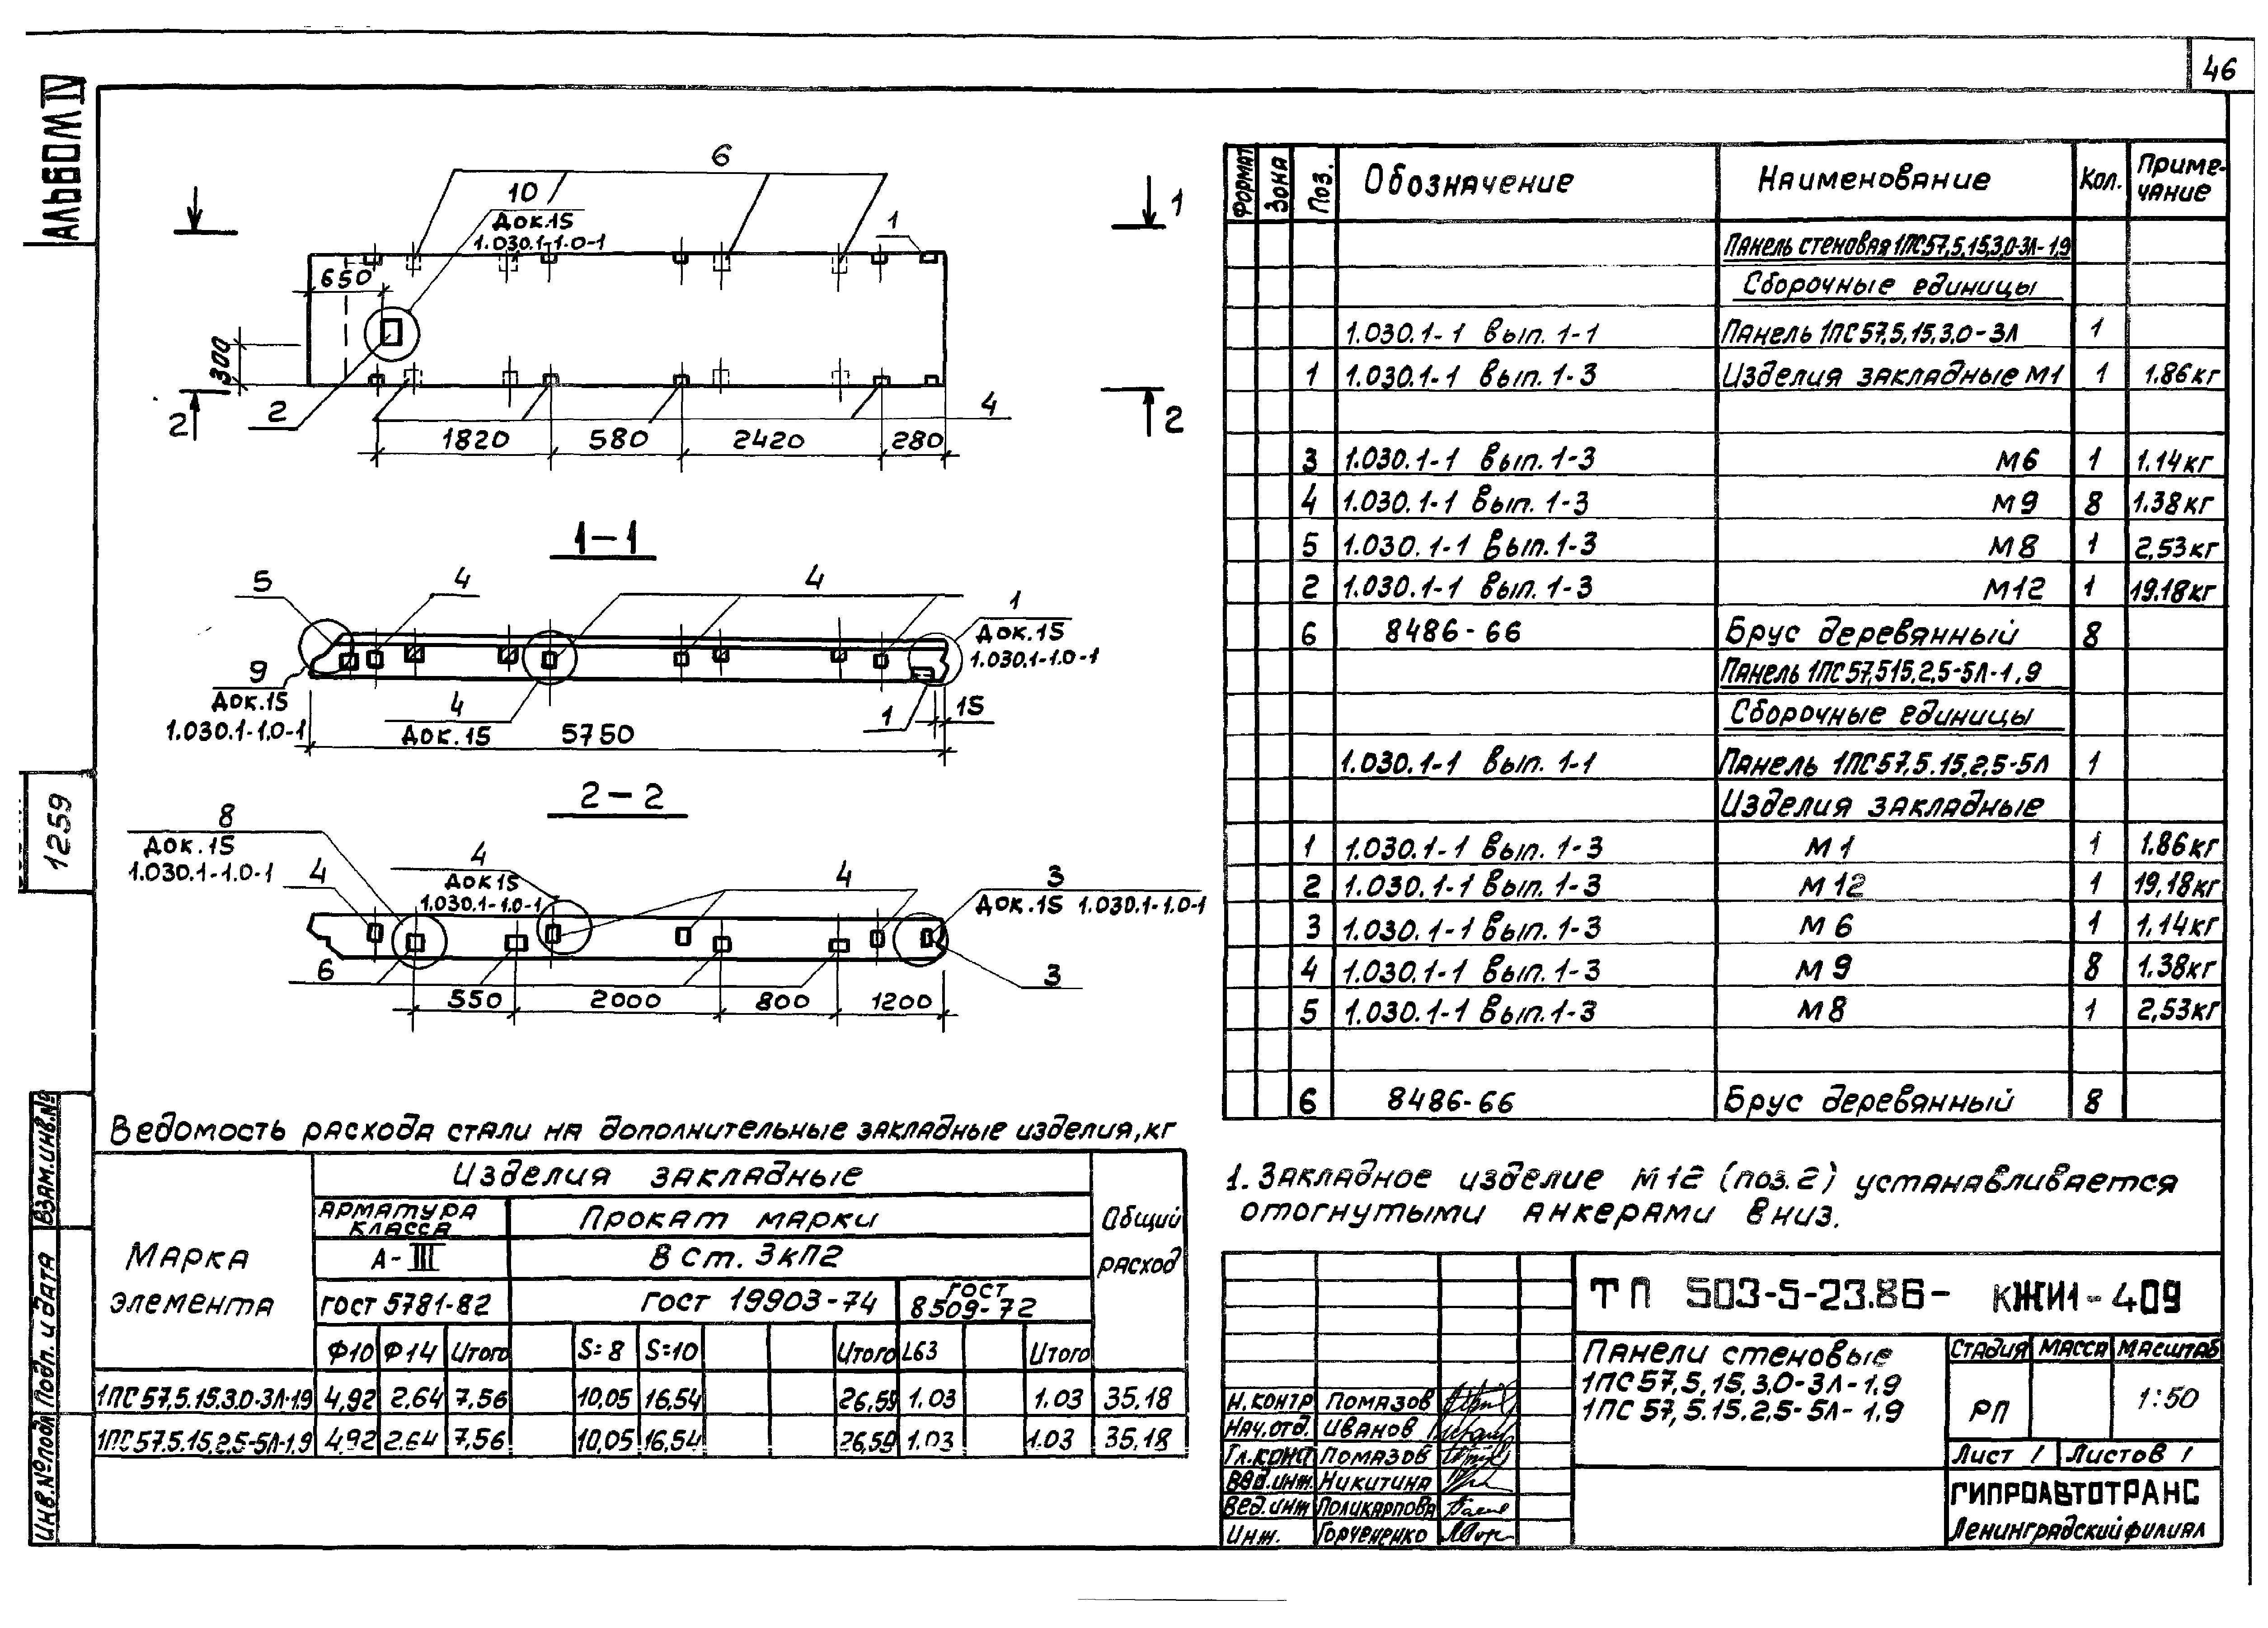 46
Альбом IV
1259
Взам.инв.№
Подп. и дата
Инв.№подл
6
10
Док.15
1.030.1-1.0-1
1
1
650
300
2
2
2
4
1820 580 2420 280
1-1
5
4
4
1
Док.15
1.030.1-1.0-1
9
Док.15
1.030.1-1.0-1
4
Док.15
1
15
5750
2-2
8
Док.15
1.030.1-1.0-1
4
4
Док15
1.030.1-1.0-1
4
3
Док.15 1.030.1-1.0-1
6
3
550 2000 800 1200
Формат Зона Поз. Обозначение Наименование Кол. Приме-
чание
Панель стеновая 1ПС57,5.15,3.0-3Л-1,9
Сборочные единицы
1.030.1-1 вып. 1-1 Панель 1ПС57,5.15.3.0-3Л 1
1 1.030.1-1 вып. 1-3 Изделия закладные М1 1 1.86кг
3 1.030.1-1 вып. 1-3 М6 1 1.14кг
4 1.030.1-1 вып. 1-3 М9 8 1.38кг
5 1.030.1-1 вып.1-3 М8 1 2,53кг
2 1.030.1-1 вып. 1-3 М12 1 19.18кг
6 8486-66 Брус деревянный 8
Панель 1ПС57,515.2.5-5Л-1.9
Сборочные единицы
1.030.1-1 вып. 1-1 Панель 1ПС57,5.15.2,5-5Л 1
Изделия закладные
1 1.030.1-1 вып. 1-3 М1 1 1.86кг
2 1.030.1-1 вып. 1-3 М12 1 19,18кг
3 1.030.1-1 вып. 1-3 М6 1 1.14кг
4 1.030.1-1 вып. 1-3 М9 8 1.38кг
5 1.030.1-1 вып.1-3 М8 1 2,53кг
6 8486-66 Брус деревянный 8
1. Закладное изделие М12 (поз.2) устанавливается
отогнутыми анкерами вниз.
Ведомость расхода стали на дополнительные закладные изделия, кг
Марка
элемента
Изделия закладные
Общий
расход
Арматура
класса
Прокат марки
А-III
В Ст. 3кП2
ГОСТ 5781-82 ГОСТ 19903-74 ГОСТ
8509-72
Ф10 Ф14 Итого S=8 S=10 Итого L63 Итого
1ПС57,5.15.3.0-3Л-1.9 4,92 2.64 7,56 10,05 16,54 26,59 1.03 1.03 35,18
1ПС57.5.15.2.5-5Л-1.9 4,92 2.64 7,56 10,05 16,54 26,59 1.03 1.03 35,18
ТП 503-5-23.86- КЖИ1-409
Панели стеновые
1ПС57,5,15,3,0-3Л-1.9
1ПС57,5.15.2,5-5Л-1.9
Стадия Масса Масштаб
РП 1:50
Лист 1 Листов 1
ГИПРОАВТОТРАНС
Ленинградский филиал
Н.контр Помазов
Нач.отд. Иванов
Гл.конс Помазов
Вед.инж. Никитина
Вед.инж Поликарпова
Инж. Горчененко